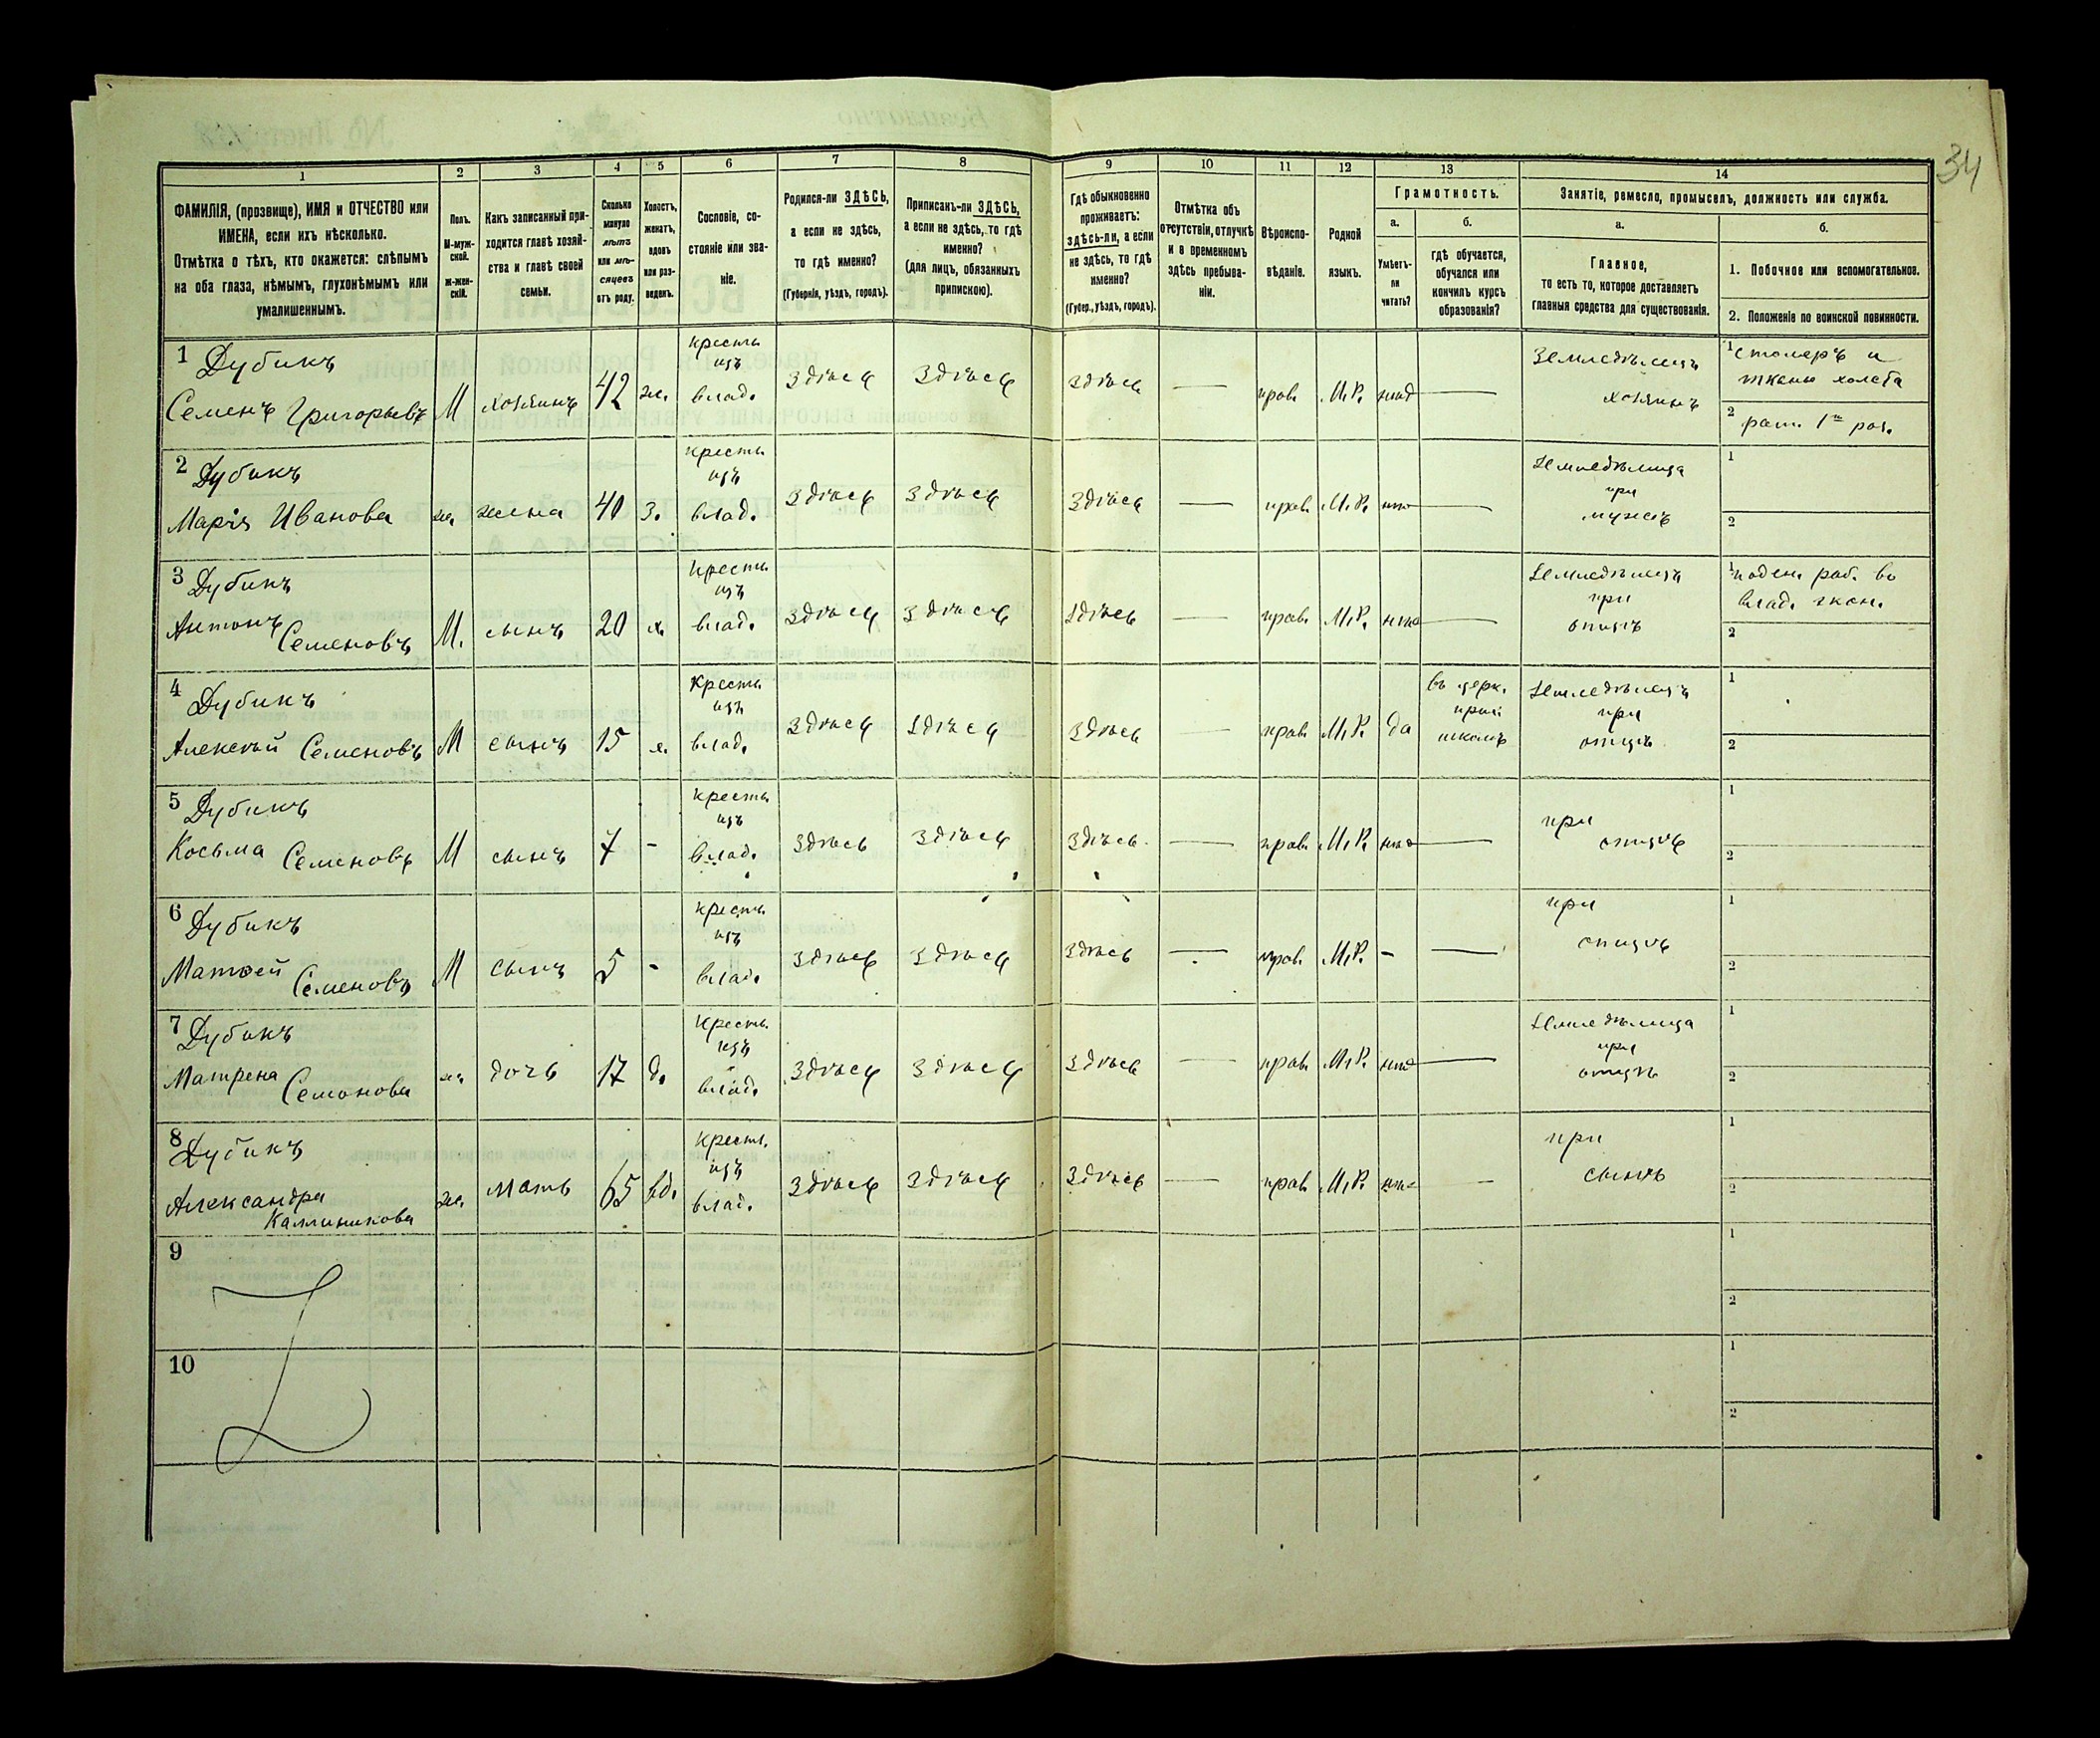 34
1 2 3 4 5 6 7 8 9 10 11 12 13 14
ФАМИЛІЯ, (прозвище), ИМЯ и ОТЧЕСТВО или
ИМЕНА, если ихъ нѣсколько.
Отмѣтка о тѣхъ, кто окажется: слѣпымъ
на оба глаза, нѣмымъ, глухонѣмымъ или
умалишеннымъ.
Полъ.
М-муж-
ской.
Ж-жен-
скій.
Какъ записанный при-
ходится главѣ хозяй-
ства и главѣ своей
семьи.
Сколько
минуло
лѣтъ
или мѣ-
сяцевъ
отъ роду.
Холостъ,
женатъ,
вдовъ
или раз-
веденъ.
Сословіе, со-
стояніе или зва-
ніе.
Родился-ли ЗДѢСЬ,
а если не здѣсь,
то гдѣ именно?
(Губернія, уѣздъ, городъ).
Приписанъ-ли ЗДѢСЬ,
а если не здѣсь, то гдѣ
именно?
(для лицъ, обязанныхъ
припискою).
Гдѣ обыкновенно
проживаетъ:
здѣсь-ли, а если
не здѣсь, то гдѣ
именно?
(Губер., уѣздъ, городъ).
Отмѣтка объ
отсутствіи, отлучкѣ
и о временномъ
здѣсь пребыва-
ніи.
Вѣроиспо-
вѣданіе.
Родной
языкъ.
Грамотность.
а.
Умѣетъ-
ли
читать?
б.
гдѣ обучается,
обучался или
кончилъ курсъ
образованія?
Занятіе, ремесло, промыселъ, должность или служба.
а.
Главное,
то есть то, которое доставляетъ
главныя средства для существованія.
б.
1. Побочное или вспомогательное.
2. Положеніе по воинской повинности.
1 Дубикъ
Семенъ Григорьевъ
М
хозяинъ
42
ж.
крестьн.
изъ
влад.
Здѣсь
Здѣсь
Здѣсь
—
прав.
М.Р.
нѣтъ
—
Земледѣлецъ
хозяинъ
1 столяръ и
2 рат. 1 раз.
2 Дубикъ
Марія Иванова
ж.
жена
40
з.
крестьн.
изъ
влад.
Здѣсь
Здѣсь
Здѣсь
—
прав.
М.Р.
нѣтъ
—
Земледѣлица
при
мужѣ
1
2
3 Дубикъ
Антонъ
Семеновъ
М.
сынъ
20
х.
крестьн.
изъ
влад.
Здѣсь
Здѣсь
Здѣсь
—
прав.
М.Р.
нѣтъ
—
Земледѣлецъ
при
отцѣ
1 поден. раб. во
влад. экон.
2
4 Дубикъ
Алексѣй Семеновъ
М
сынъ
15
х.
крестьн.
изъ
влад.
Здѣсь
Здѣсь
Здѣсь
—
прав.
М.Р.
да
въ церк.
прих.
школѣ
Земледѣлецъ
при
отцѣ
1
2
5 Дубикъ
Косьма Семеновъ
М
сынъ
7
-
крестьн.
изъ
влад.
Здѣсь
Здѣсь
Здѣсь
—
прав.
М.Р.
нѣтъ
—
при
отцѣ
1
2
6 Дубикъ
Матвей
Семеновъ
М
сынъ
5
-
крестьн.
изъ
влад.
Здѣсь
Здѣсь
Здѣсь
—
прав.
М.Р.
-
—
при
отцѣ
1
2
7 Дубикъ
Матрена
Семенова
ж.
дочь
17
д.
крестьн.
изъ
влад.
Здѣсь
Здѣсь
Здѣсь
—
прав.
М.Р.
нѣтъ
—
Земледѣлица
при
отцѣ
1
2
8 Дубикъ
Александра
Каллиникова
ж.
мать
65
вд.
крестьн.
изъ
влад.
Здѣсь
Здѣсь
Здѣсь
—
прав.
М.Р.
нѣтъ
-
при
сынѣ
1
2
9
1
2
10
1
2